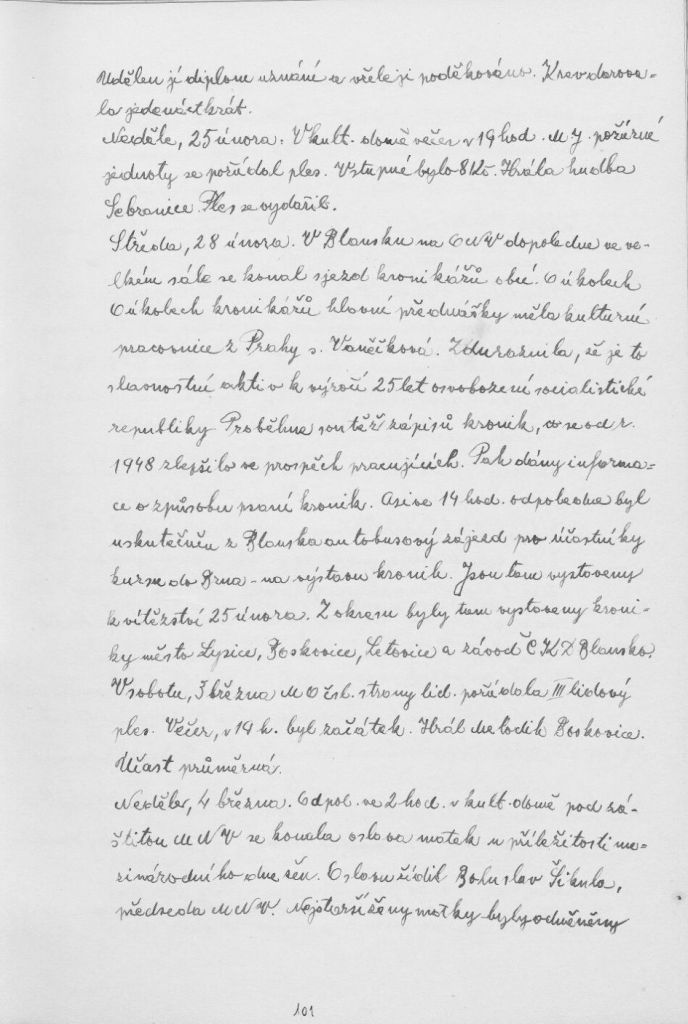 Udělen jí diplom uznání a vřele jí poděkováno. Krev darova-
la jedenáctkrát.
Neděle, 25 února. V kult. domě večer v 19 hod. M J. požární
jednoty se pořádal ples. Vstupné bylo 8 Kč. Hrála hudba
Sebranice. Ples se vydařil.
Středa, 28 února. V Blansku na ONV dopoledne ve ve-
lkém sále se konal sjezd kronikářů obcí. O úkolech
O úkolech kronikářů hlavní přednášky měla kulturní
pracovnice z Prahy s. Vaněčková. Zdůraznila, že je to
slavnostní aktiv k výročí 25 let osvobození socialistické
republiky. Proběhne soutěž zápisů kronik, co se od r.
1948 zlepšilo ve prospěch pracujících. Pak dány informa-
ce o způsobu psaní kronik. Asi ve 14 hod. odpoledne byl
uskutečněn z Blanska autobusový zájezd pro účastníky
kursu do Brna - na výstavu kronik. Jsou tam vystaveny
k vítězství 25 února. Z okresu byly tam vystaveny kroni-
ky město Lysice, Boskovice, Letovice a závod ČKD Blansko.
V sobotu, 3 března M O čsl. strany lid. pořádala III lidový
ples. Večer, v 19 h. byl začátek. Hrál Melodik Boskovice.
Účast průměrná.
Neděle, 4 března. Odpol. ve 2 hod. v kult. domě pod zá-
štitou MNV se konala oslava matek u příležitosti me-
zinárodního dne žen. Oslavu řídil Bohuslav Šikula,
předseda MNV. Nejstarší ženy matky byly odměněny
101